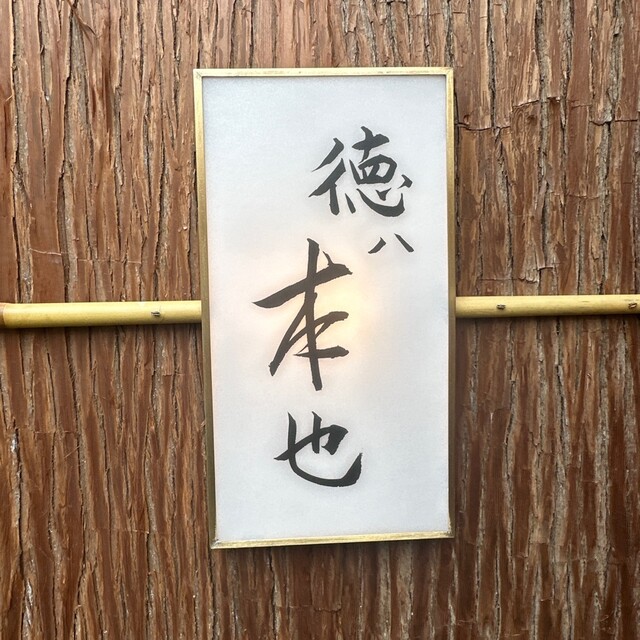 徳ハ本也